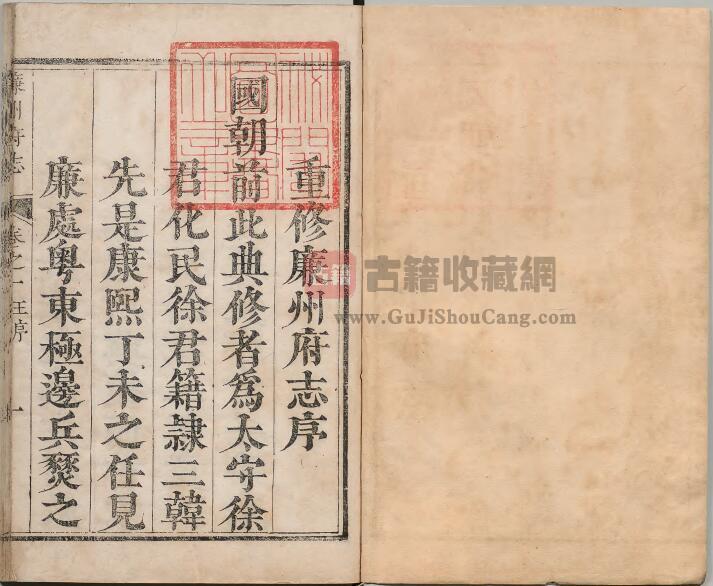 重修廉州府志序
國朝前此典修者為太守徐
君化民徐君籍隸三韓
先是康熙丁未之任見
廉處粵東極邊兵燹之
廉州府志
卷之一
序
一
古籍收藏網
www.GuJiShouCang.com